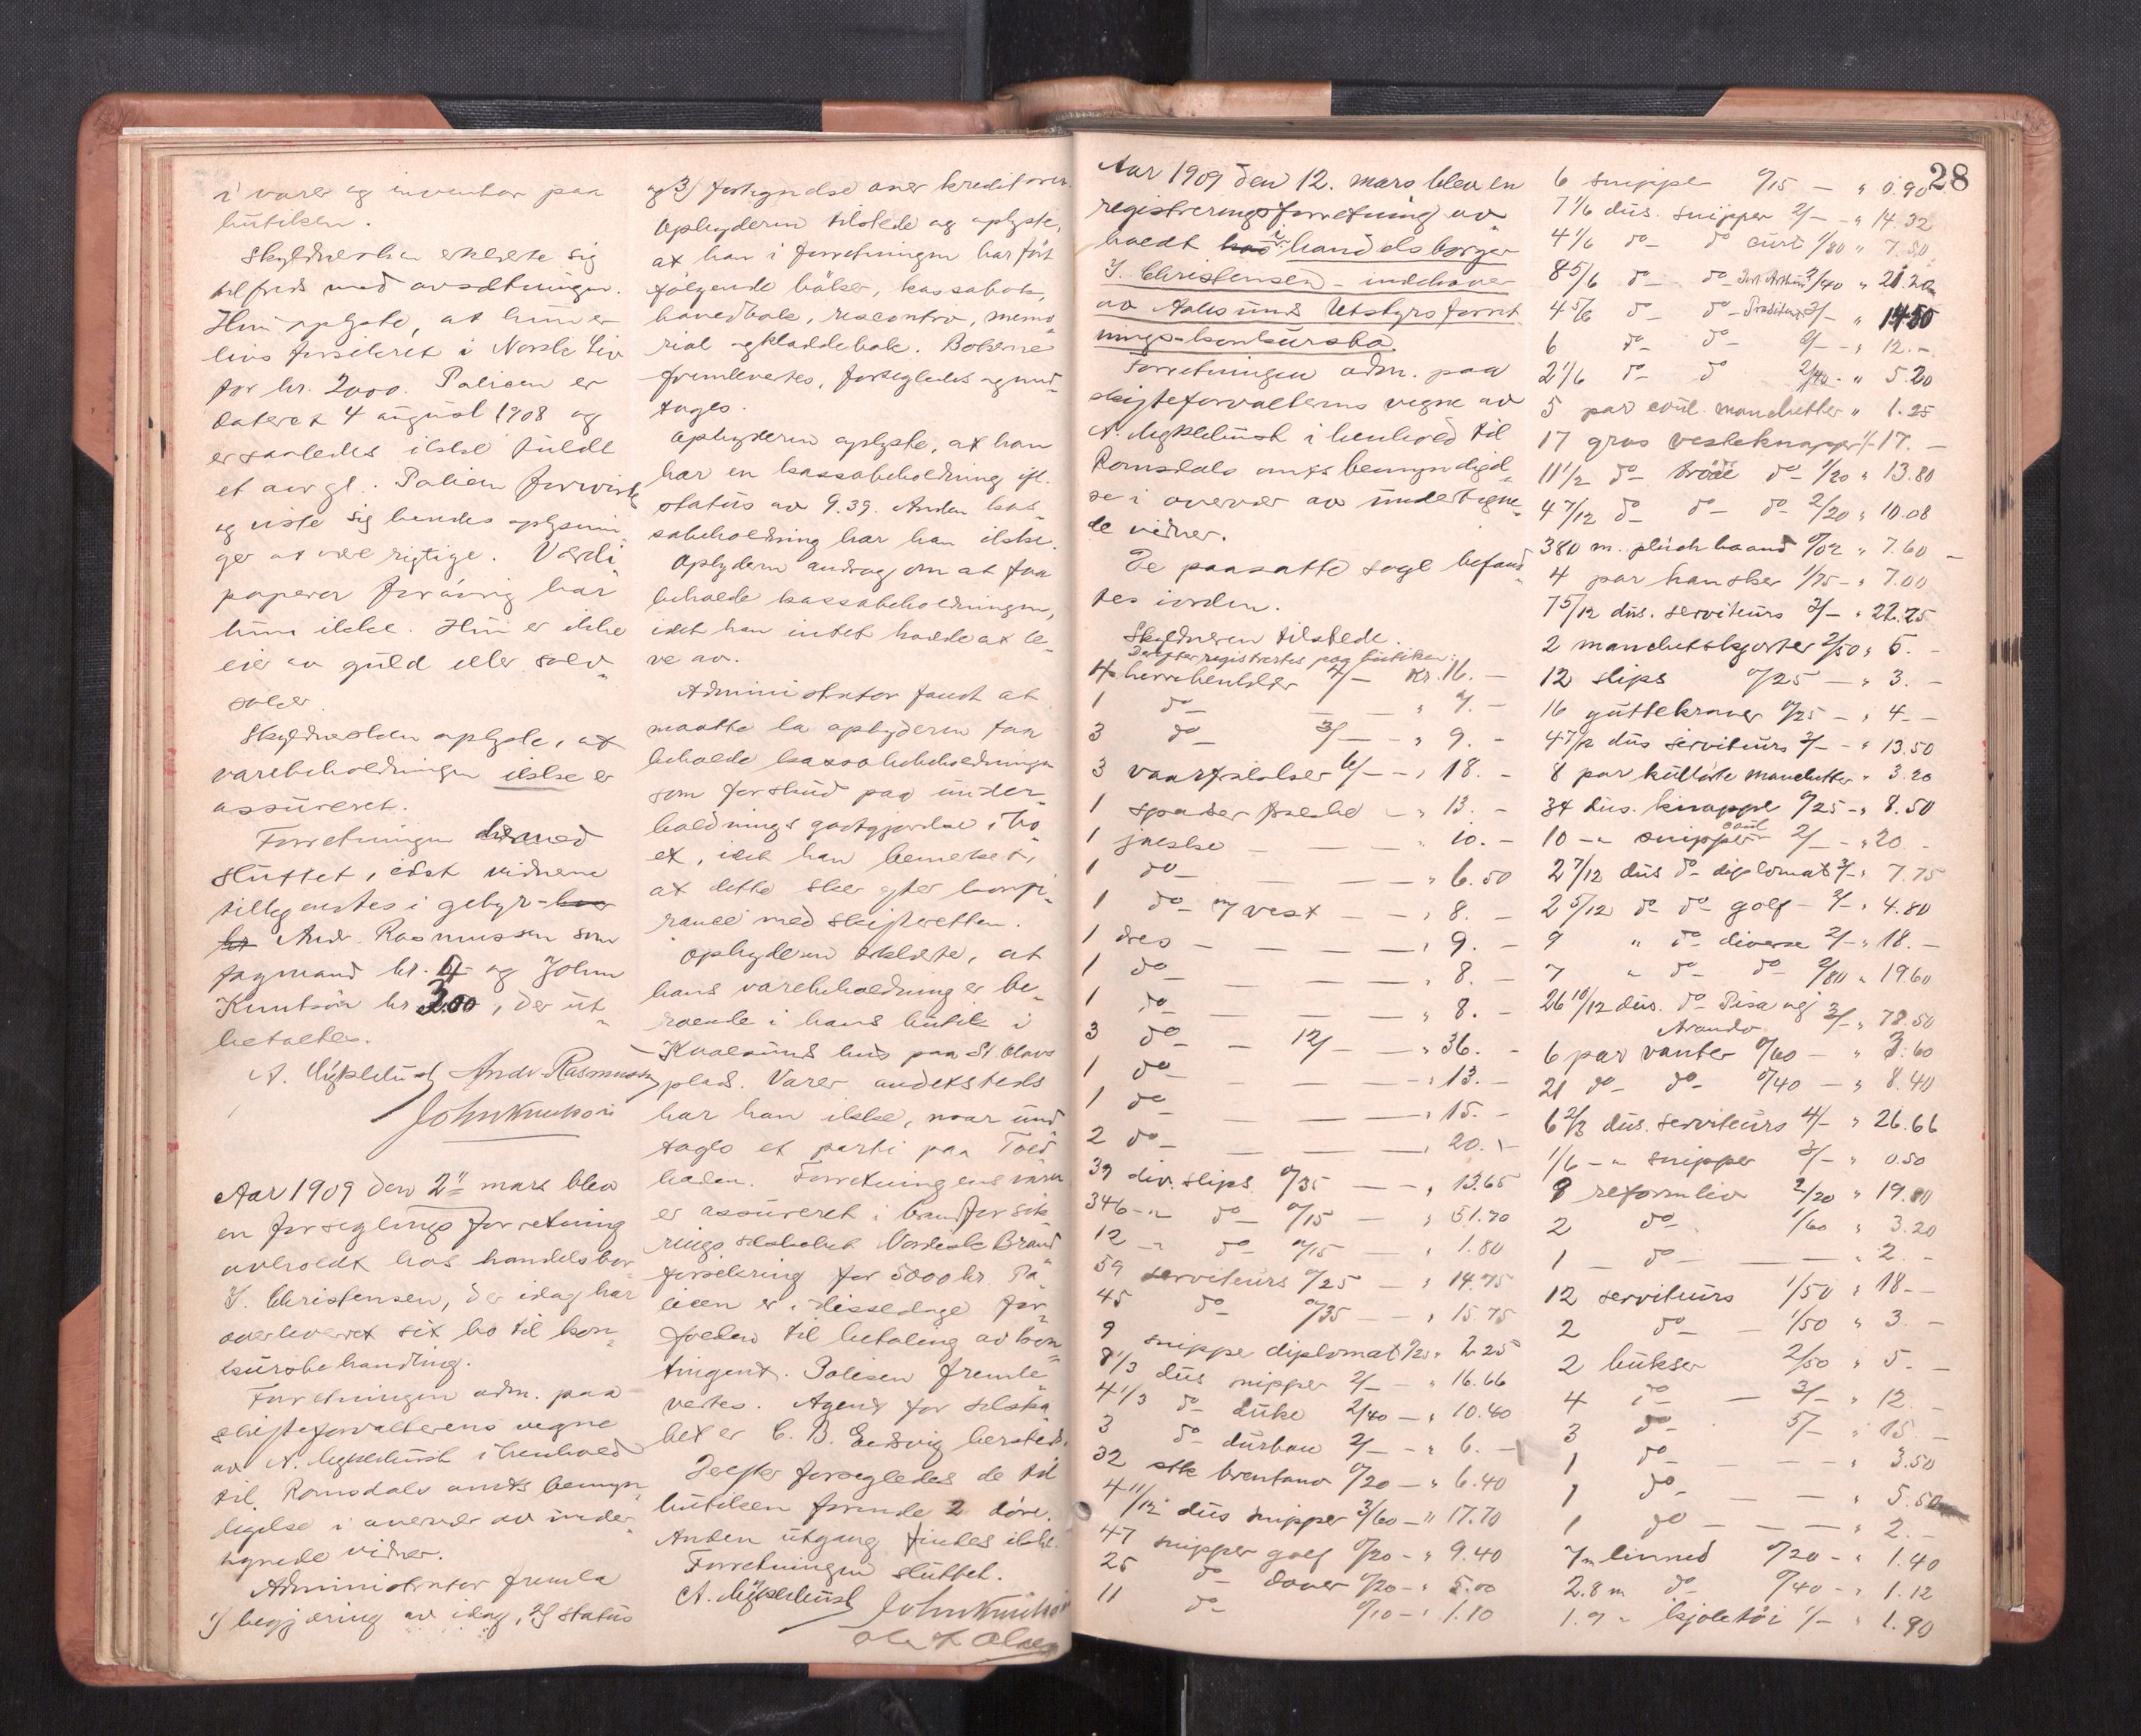 i varer og inventar paa
butiken.
Skyldnersken erklærte sig
tilfreds med avsætningen.
Hun oplyste, at hun er
livsforsikret i Norske Liv
for kr. 2000. Policen er
dateret 4 august 1908 og
er saaledes ikke fuldt
et aar gl. Policen forevistes
og viste sig hendes oplysnin-
ger at være rigtige. Værdi-
papirer forøvrig har
hun ikke. Hun er ikke
eier av guld eller sølv-
saker.
Skyldnersken oplyste, at
varebeholdningen ikke er
assureret.
Forretningen dermed
sluttet, idet vidnene
tillegnestes i gebyr
Andr. Rasmussen som
fagmand kr. 4- og John
Knutsøn kr 2.00, der ut-
betaltes.
A. Myklebust Andr. Rasmussen
John Knutson
Aar 1909 den 2" mars blev
en forseglingsforretning
avholdt hos handelsbor
J. Christensen, der idag har
overleveret sit bo til kon-
kursbehandling.
Forretningen adm. paa
skifteforvalterens vegne
av A. Myklebust i henhold
til Romsdals amts bemyn-
digelse i overvær av under-
tegnede vidner.
Administrator fremla
1) begjæring av idag, 2) status
og 3) fortegnelse over kreditorer.
Opbyderen tilstede og oplyste,
at han i forretningen har ført
følgende bøker, kassabok,
hovedbok, rescontro, memo-
rial og kladdebok. Bøkerne
fremlevertes, forsegledes og med-
toges.
Opbyderen oplyste, at han
har en kassabeholdning ifl.
status av 9.39. Anden kas-
sabeholdning har han ikke.
Opbyderen androg om at faa
beholde kassabeholdningen,
idet han intet hadde at le-
ve av.
Administrator fandt at
maatte la opbyderen faa
beholde kassabeholdningen
som forskud paa under-
holdningsgodtgjørelse i bo-
et, idet han bemerket,
at dette sker efter konfe-
rance med skifteretten.
Opbyderen erklærte, at
hans varebeholdning er be-
roende i hans butik i
Kvalsunds hus paa St. Olavs
plads. Varer andetsteds
har han ikke, naar und-
tages et parti paa Told-
boden. Forretningens varer
er assureret i brandforsik-
ringsselskabet Nordisk Brand-
forsikring for 5000 kr. Po-
licen er i disse dage for-
falden til betaling av kon-
tingent. Polisen fremle-
vertes. Agent for selska-
bet er C. B. Endvig hersteds.
Derefter forsegledes de til
butiken førende 2 døre.
Anden utgang findes ikke.
Forretningen sluttet.
A. Myklebust John Knutson
Ole K Olsen
28
Aar 1909 den 12. mars blev en
registreringsforretning av-
holdt hos i handelsborger
J. Christensen - indehaver
av Aalesunds Utstyrsforret-
nings-konkursbo.
Forretningen adm. paa
skifteforvalterens vegne av
A. Myklebust i henhold til
Romsdals amts bemyndigel-
se i overvær av undertegne-
de vidner.
De paasatte segl befand-
tes iorden.
Skyldneren tilstede.
Derefter registrertes paa butiken:
4 herrebenklær 4/- Kr. 16. -
1 do - - " 7. -
3 do 3/- - " 9. -
3 vaarfrakker 6/- - " 18. -
1 spaserfrakke - " 13. -
1 jakke - - " 10. -
1 do - - " 6.50
1 do m/ vest - - " 8. -
1 dres - - - " 9. -
1 do - - - " 8. -
1 do - - - " 8. -
3 do - 12/- - " 36. -
1 do - - - " 13. -
1 do - - - " 15. -
2 do - - - " 20. -
39 div. slips 0/35 - - " 13.65
346 - " do 0/15 - " 51.90
12 - " do 0/15 - " 1.80
59 serviteurs 0/25 - " 14.75
45 do 0/35 - - " 15.75
9 snippe diplomat 0/25 " 2.25
8 1/3 dus snipper 2/- - " 16.66
4 1/3 do duke 2/40 - " 10.40
3 do durban 2/- - " 6. -
32 stk brentano 0/20 - " 6.40
4 11/12 dus snipper 3/60 - " 17.70
47 snipper golf 0/20 - " 9.40
25 do dover 0/20 - " 5.00
11 do 0/10 - " 1.10
6 snipper 0/15 - " 0.90
7 1/6 dus. snipper 2/- - " 14.32
4 1/6 do do curt 1/80 " 7.50
8 5/6 do do Port Arthur 2/40 " 21.20
4 5/6 do do 3/- " 14.50
6 do do 2/- - " 12. -
2 1/6 do do 2/40 - " 5.20
5 par coul. manchetter " 1.25
17 gros vesteknapper 1/- 17. -
11 1/2 do traad do 1/20 " 13.80
4 7/12 do do do 2/20 " 10.08
380 m. plüchbaand 0/02 " 7.60 -
4 par hansker 1/75 - " 7.00
7 5/12 dus. serviteurs 3/- " 22.25
2 manchetskjorter 2/50 " 5. -
12 slips 0/25 - " 3. -
16 guttekraver 0/25 - " 4. -
4 7/12 dus serviteurs 3/- - " 13.50
8 par kullørte manchetter " 3.20
34 dus. knapper 0/25 - " 8.50
10 - " snipper coul 2/- - " 20. -
2 7/12 dus do diplomat 3/- " 7.75
2 5/12 do do golf - 2/- " 4.80
9 " do diverse 2/- " 18. -
7 " do do 2/80 " 19.60
26 10/12 dus. do Pisa og
Arando 3/- " 78.50
6 par vanter 0/60 - " 3.60
21 do do 0/40 - " 8.40
6 2/3 dus. serviteurs 4/- " 26.66
1/6 - " snipper 3/- " 0.50
9 reformliv 2/20 " 19.80
2 do 1/60 " 3.20
1 do - - " 2. -
12 serviteurs 1/50 " 18 -
2 do - 1/50 " 3. -
2 bukser 2/50 " 5. -
4 do - 3/- " 12. -
3 do 5/- " 15. -
1 do - - - " 3.50
1 do - - " 5.50
1 do - - - " 2. -
7 m linned 0/20 - " 1.40
2.8 m do 0/40 - " 1.12
1.9 " kjoletøi 1/- " 1.90